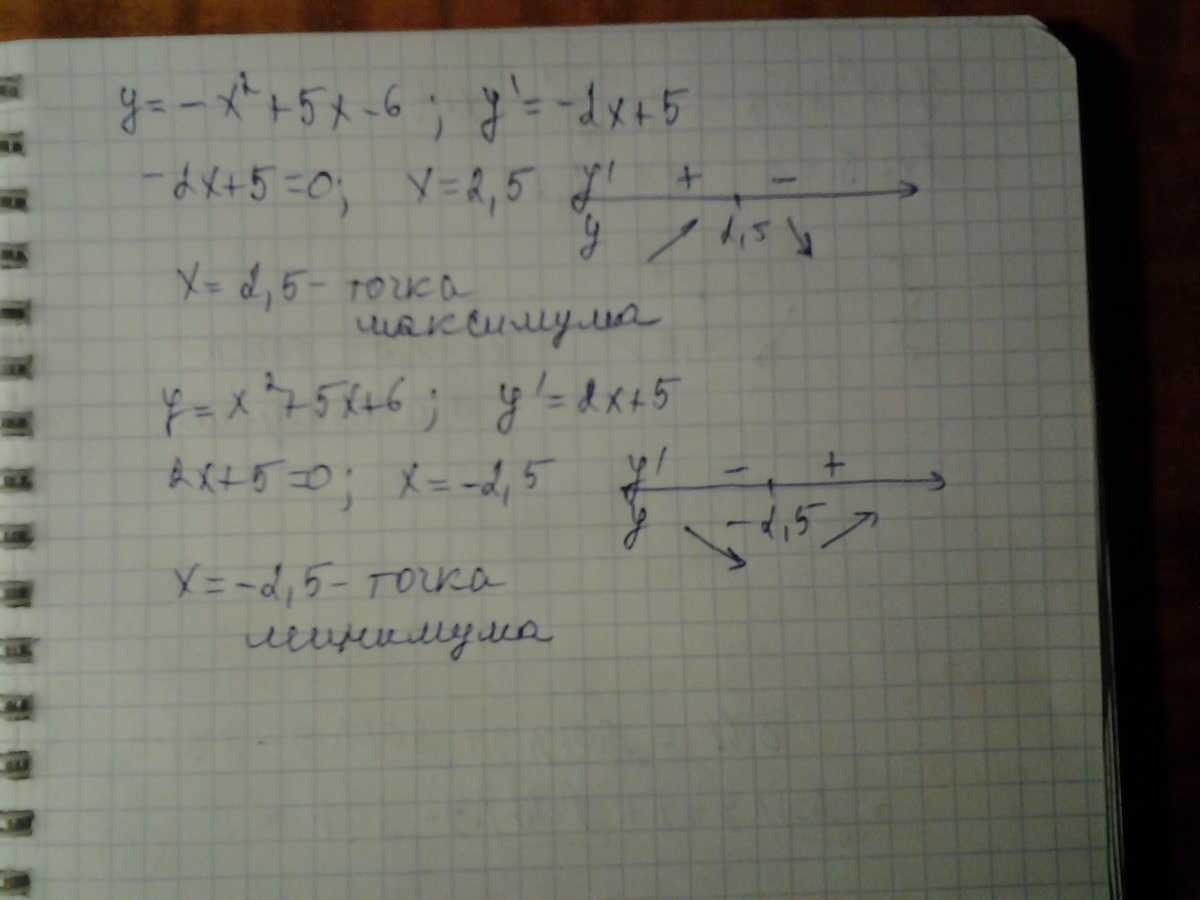 y = -x² + 5x - 6 ; y' = -2x + 5
-2x + 5 = 0 ; x = 2,5 y' + -
y 2,5
x = 2,5 - точка
максимума
y = x² + 5x + 6 ; y' = 2x + 5
2x + 5 = 0 ; x = -2,5 y' - +
y -2,5
x = -2,5 - точка
минимума